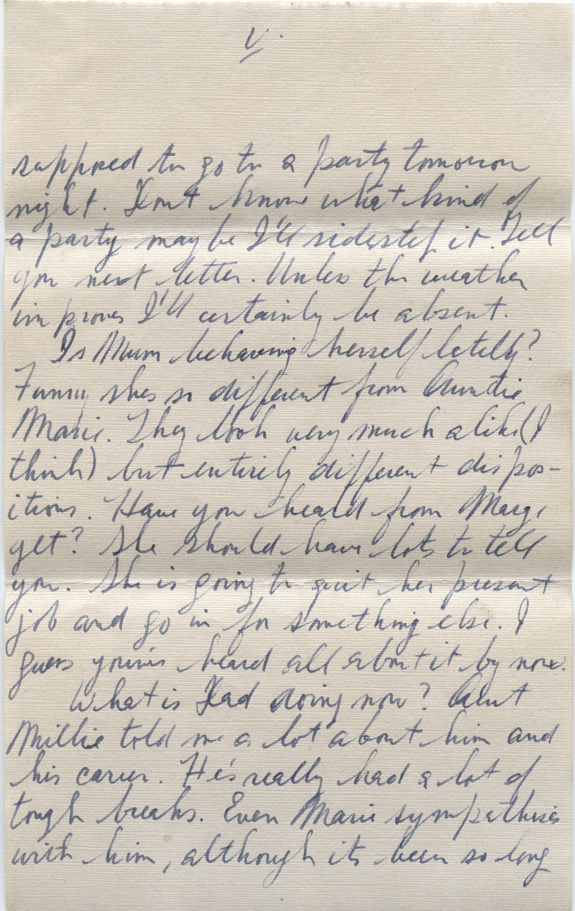 V.
supposed to go to a party tomorrow
night. Don't know what kind of
a party maybe I'll sidestep it. Tell
you next letter. Unless the weather
improves I'll certainly be absent.
Is Mum behaving herself lately?
Funny she's so different from Auntie
Marie. They look very much alike (I
think) but entirely different dispos-
itions. Have you heard from Marge
yet? She should have lots to tell
you. She is going to quit her present
job and go in for something else. I
guess you've heard all about it by now.
What is Dad doing now? Aunt
Millie told me a lot about him and
his career. He's really had a lot of
tough breaks. Even Marie sympathises
with him, although its been so long